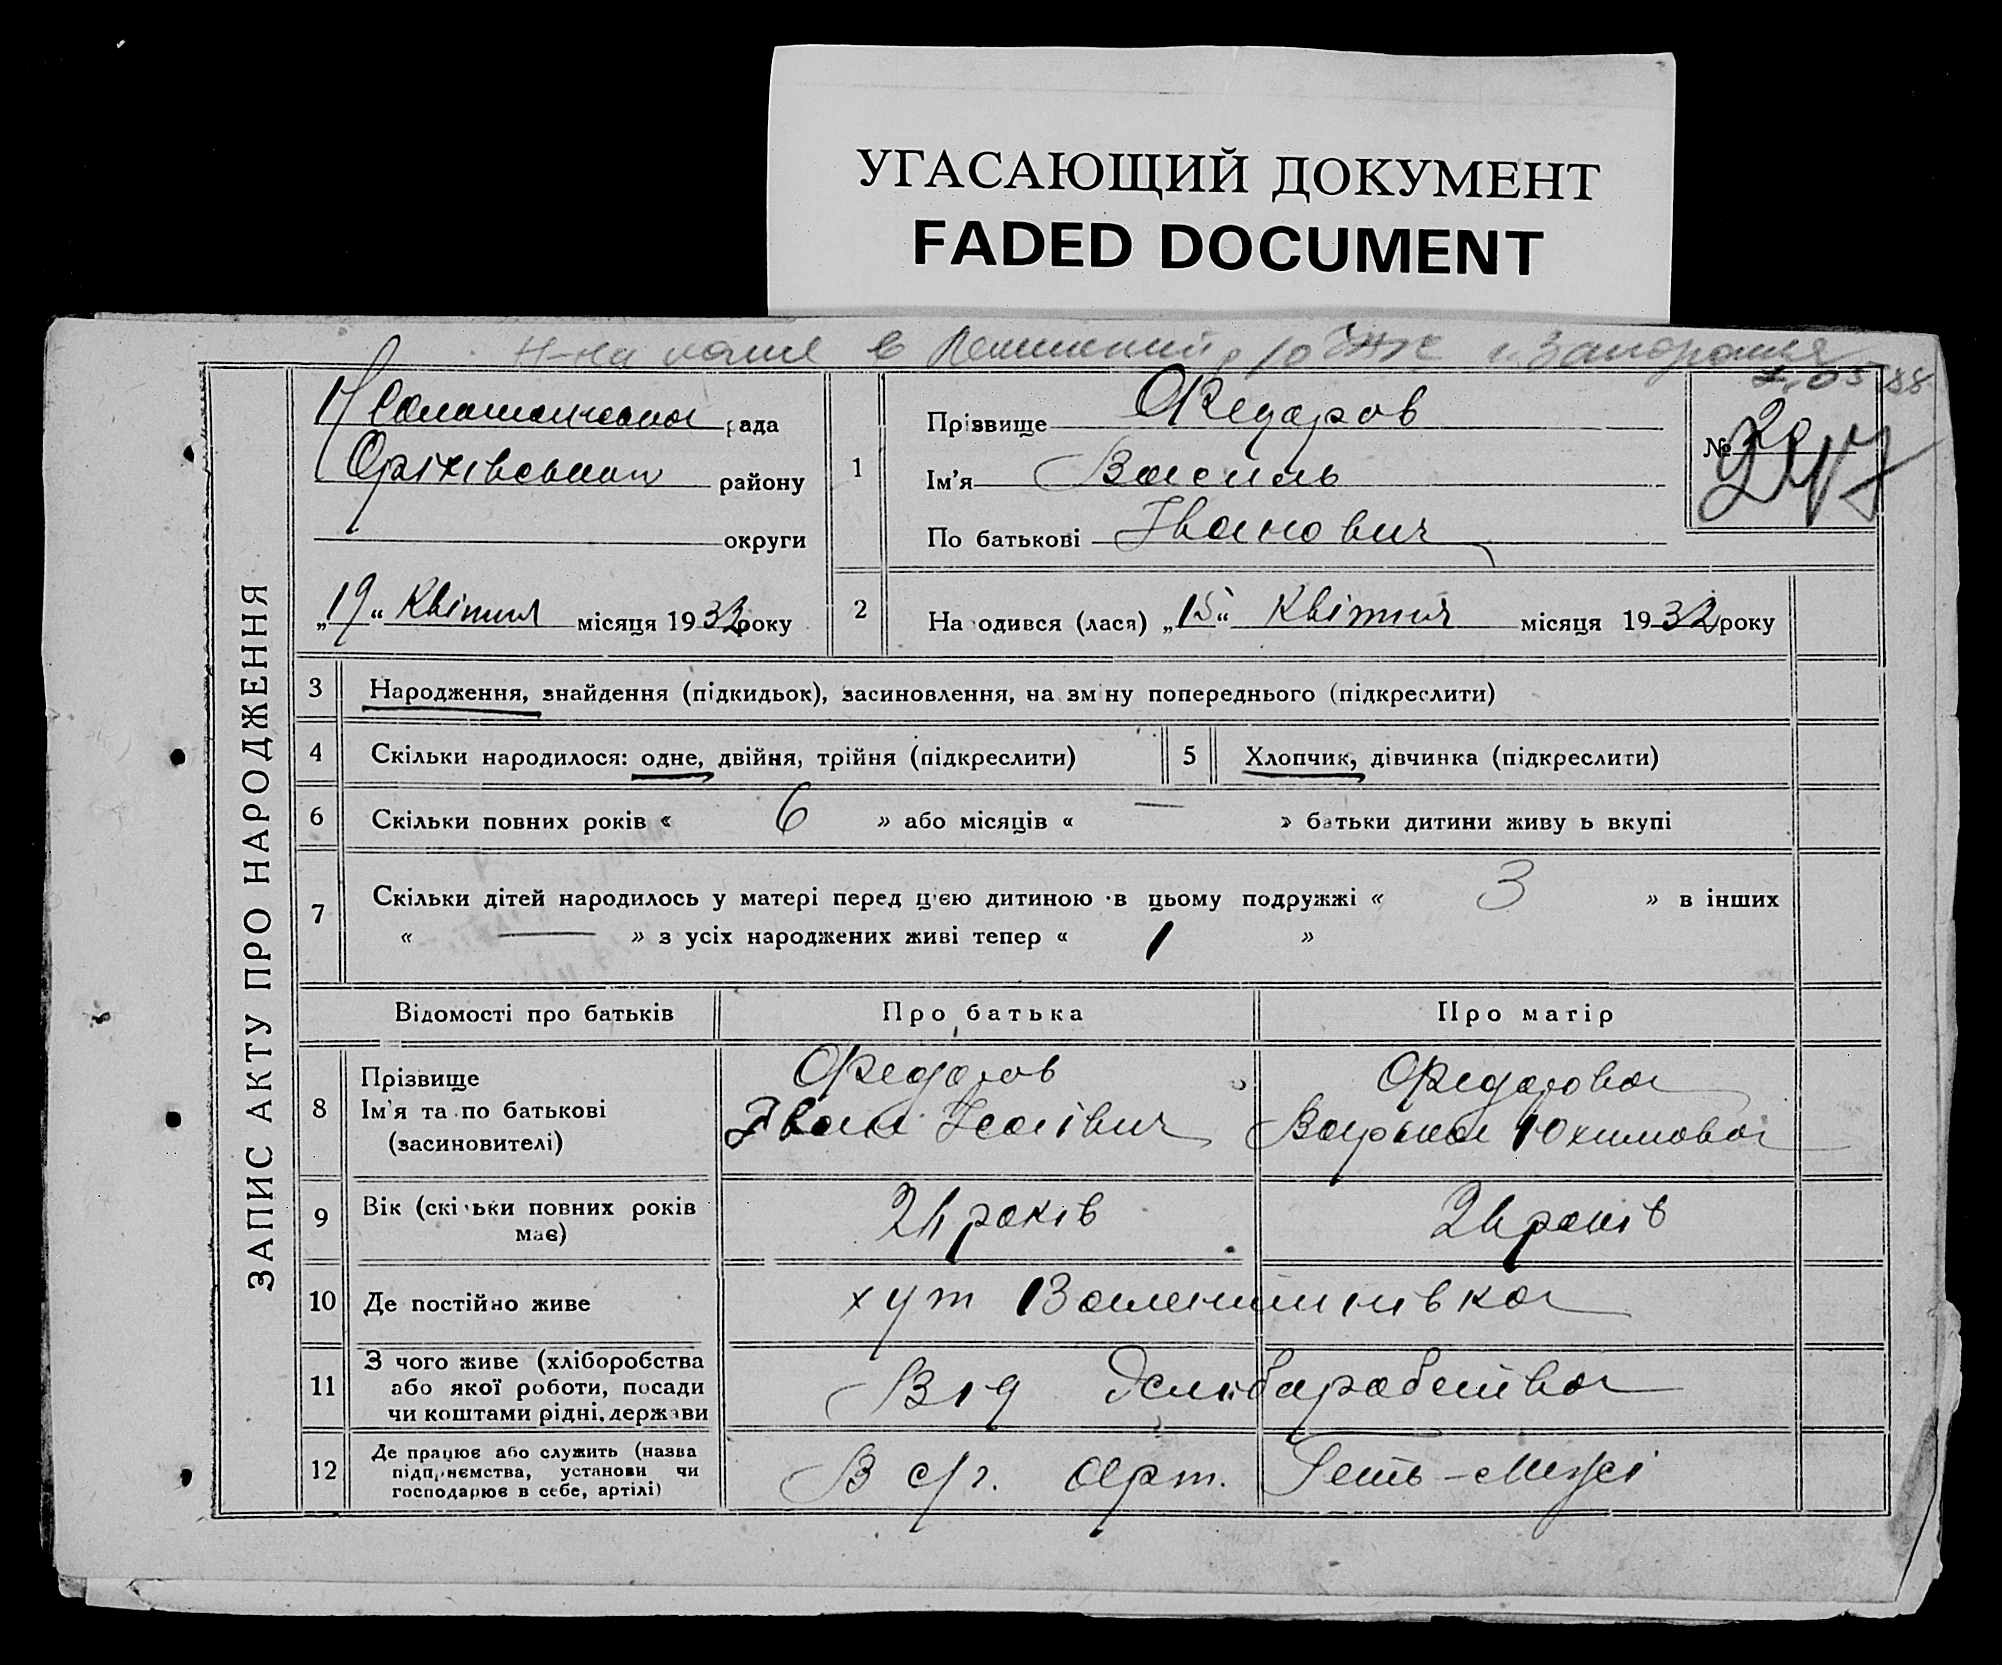 УГАСАЮЩИЙ ДОКУМЕНТ
FADED DOCUMENT
рада
Оріхівськ району
округи
„19“ Квітня місяця 1932 року
1 Прізвище Федоров
Ім'я Василь
По батькові Іванович
№ 20
247
2 Народився (лася) „15“ Квітня місяця 1932 року
ЗАПИС АКТУ ПРО НАРОДЖЕННЯ
3 Народження, знайдення (підкидьок), засиновлення, на зміну попереднього (підкреслити)
4 Скільки народилося: одне, двійня, трійня (підкреслити) 5 Хлопчик, дівчинка (підкреслити)
6 Скільки повних років « 6 » або місяців « — » батьки дитини живуть вкупі
7 Скільки дітей народилось у матері перед цією дитиною в цьому подружжі « 3 » в інших
« — » з усіх народжених живі тепер « 1 »
Відомості про батьків Про батька Про матір
8 Прізвище
Ім'я та по батькові
(засиновителі)
Федоров
Іван Ісаївич
Федорова
Варька Юхимова
9 Вік (скільки повних років
має)
24 років 24 років
10 Де постійно живе хут Валентинівка
11 З чого живе (хліборобства
або якої роботи, посади
чи коштами рідні, держави
Від
12 Де працює або служить (назва
підприємства, установи чи
господарює в себе, артілі)
В с/г. Арт. Геть-Межі